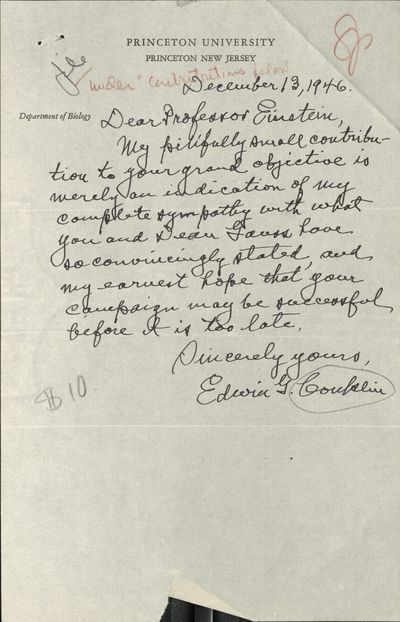 PRINCETON UNIVERSITY
PRINCETON NEW JERSEY
file
under "contributions
December 13, 1946.
Department of Biology
Dear Professor Einstein,
My pitifully small contribu-
tion to your grand objective is
merely an indication of my
complete sympathy with what
you and Dean Gauss have
so convincingly stated, and
my earnest hope that your
campaign may be successful
before it is too late.
Sincerely yours,
Edwin G. Conklin
$10.